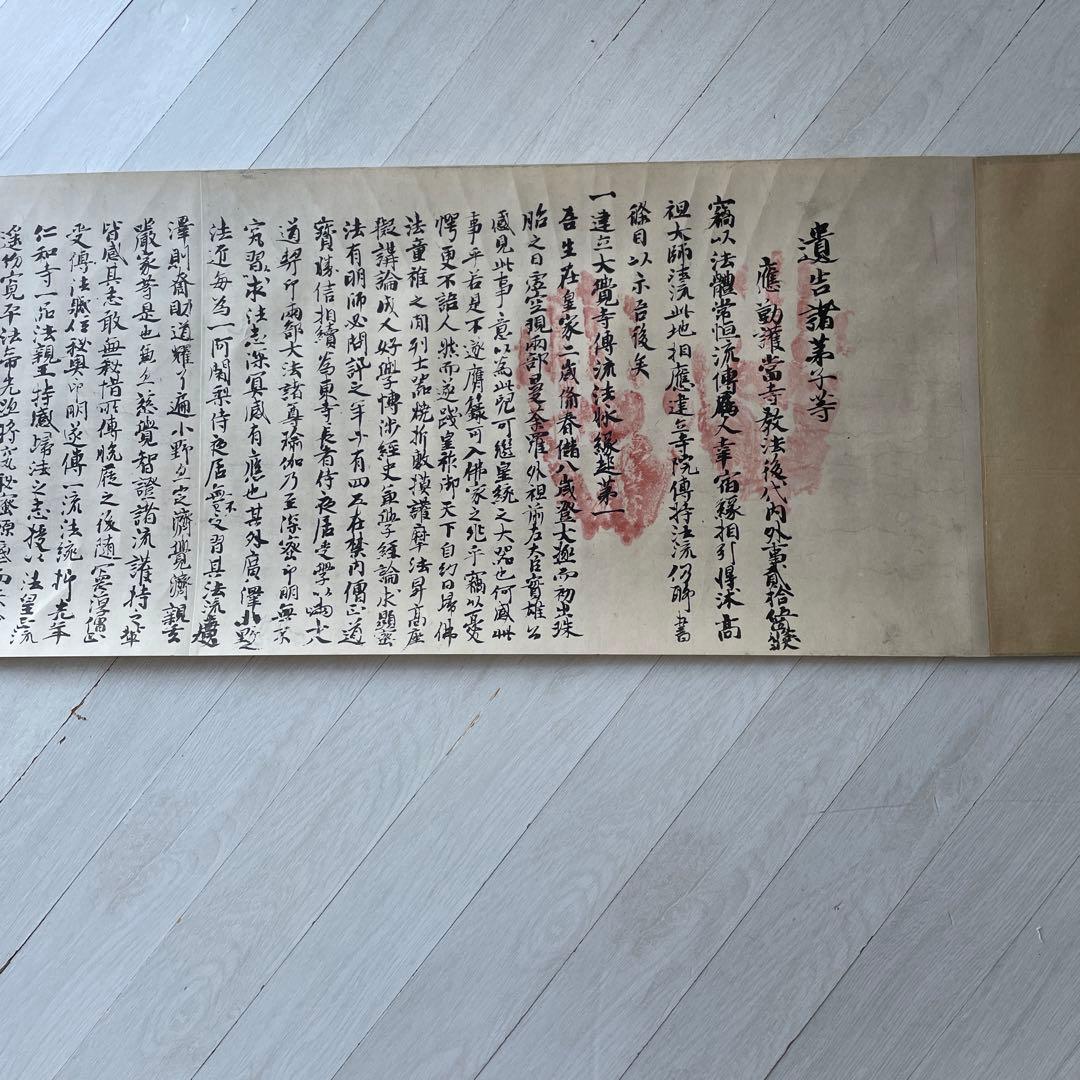 遺告諸弟子等
應勤護當寺教法後代内外事貳拾箇條
竊以法體常恒流傳属人幸宿縁相引惺沐高
祖大師法流此地相應建立寺院傳持法流仍聊書
條目以示吾後矣
一建立大覺寺傳流法脉縁起第一
吾生在皇家二歳俻春儲八歳登大極而初出珠
胎之日虚空現兩部曼荼羅外祖前左大臣實雄公
感見此事意以為此兒可繼皇統之大器也何感此
事乎若是不遂膺籙可入佛家之兆乎竊以憂
愕更不語人然而遂践皇祚御天下自約日歸佛
法童稚之間列士器焼折敷摸護摩法昇高座
擬講論成人好學博渉經史兼學經論求顯密
法有明師必問訪之年廿有四五在禁内傳正道
寳勝信相續為東寺長者侍夜居受學以両大
道契印兩部大法諸尊瑜伽乃至深密印明無不
究習求法志深冥感有應也其外廣澤小野
法匠每為一阿闍梨侍夜居無不受習其法流廣
澤則齋助道耀了遍小野者定濟覺濟親玄
嚴家等是也兼亦慈覺智證諸流護持之輩
皆感其志敢無秘惜所傳脱屣之後随一宮僧正
受傳法職位秘奥印明遂傳一流法統抑先年
仁和寺一品法親王持感歸法之志授以法皇一流